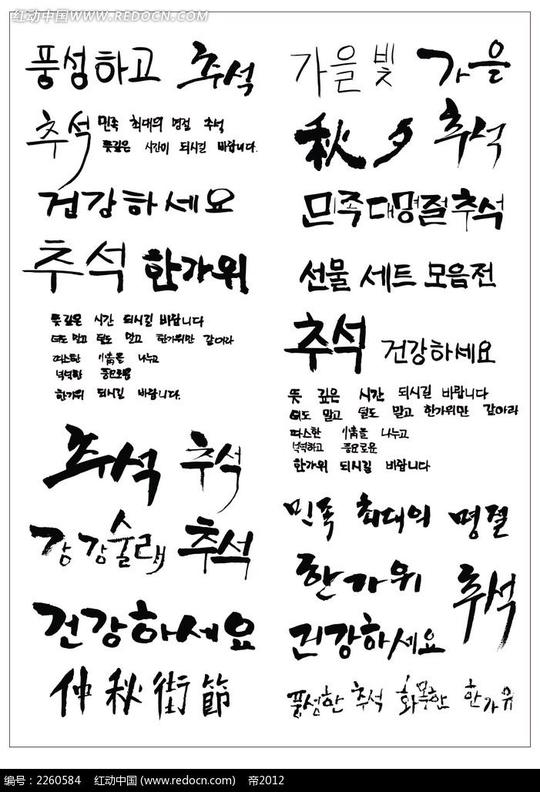 红动中国 WWW.REDOCN.COM
풍성하고 추석
추석 민족 최대의 명절 추석
뜻깊은 시간이 되시길 바랍니다.
건강하세요
추석 한가위
뜻깊은 시간 되시길 바랍니다
더도 말고 덜도 말고 한가위만 같아라
따스한 情을 나누고
넉넉한 풍요로움
한가위 되시길 바랍니다.
추석 추석
강강술래 추석
건강하세요
仲秋街節
가을빛 가을
秋夕 추석
민족대명절추석
선물 세트 모음전
추석 건강하세요
뜻 깊은 시간 되시길 바랍니다
더도 말고 덜도 말고 한가위만 같아라
따스한 情을 나누고
넉넉하고 풍요로운
한가위 되시길 바랍니다
민족 최대의 명절
한가위 추석
건강하세요
풍성한 추석 화목한 한가위
编号：2260584 红动中国 (www.redocn.com) 帝2012